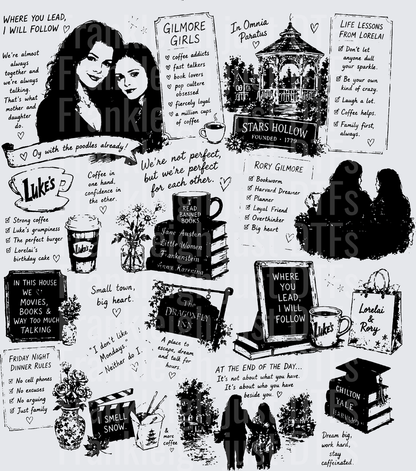 WHERE YOU LEAD,
I WILL FOLLOW
We're almost
always
together and
we're always
talking.
That's what
mother and
daughter
do.
Oy with the poodles already!
GILMORE
GIRLS
coffee addicts
fast talkers
book lovers
pop culture
obsessed
fiercely loyal
a million cups
of coffee
In Omnia
Paratus
STARS HOLLOW
FOUNDED · 1779
LIFE LESSONS
FROM LORELAI
Don't let
anyone dull
your sparkle.
Be your own
kind of crazy.
Laugh a lot.
Coffee helps.
Family first,
always.
Luke's
Strong coffee
Luke's grumpiness
The perfect burger
Lorelai's
birthday cake
Coffee in
one hand,
confidence in
the other.
Luke's
We're not perfect,
but we're perfect
for each other.
READ
BANNED
BOOKS
Jane Austen
Little Women
Frankenstein
Anna Karenina
RORY GILMORE
Bookworm
Harvard Dreamer
Planner
Loyal Friend
Overthinker
Big heart
IN THIS HOUSE
WE
MOVIES,
BOOKS &
WAY TOO MUCH
TALKING
Small town,
big heart.
I don't like
Mondays.
Neither do I.
THE
DRAGONFLY
INN
A place to
escape, dream
and talk for
hours.
WHERE
YOU
LEAD,
I WILL
FOLLOW
Luke's
Lorelai
&
Rory.
FRIDAY NIGHT
DINNER RULES
No cell phones
No excuses
No arguing
Just family
I
SMELL
SNOW.
A
more
coffee
AT THE END OF THE DAY...
It's not about what you have.
It's about who you have
beside you.
CHILTON
YALE
Dream big,
work hard,
stay
caffeinated.